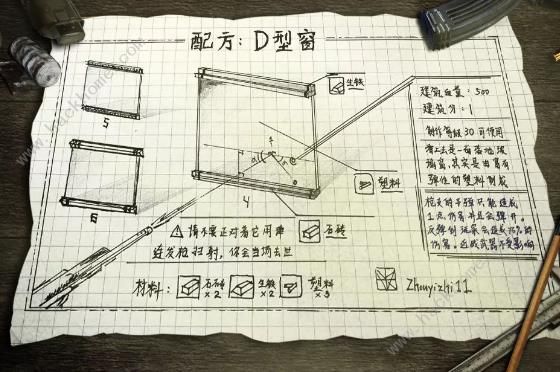 配方：D型窗
生铁
建筑血量：500
建筑分：1
5
制作等级30可使用
看上去是一面落地玻
璃窗，其实是由富有
弹性的塑料制成
塑料
4
6
石砖
枪支的子弹只能造成
1点伤害并且会弹开。
反弹到玩家会造成75%的
伤害。近战武器不受影响
⚠ 请不要正对着它用
连发枪扫射，你会当场去世
材料：
石砖
×2
生铁
×2
塑料
×3
Zhouyizhi11